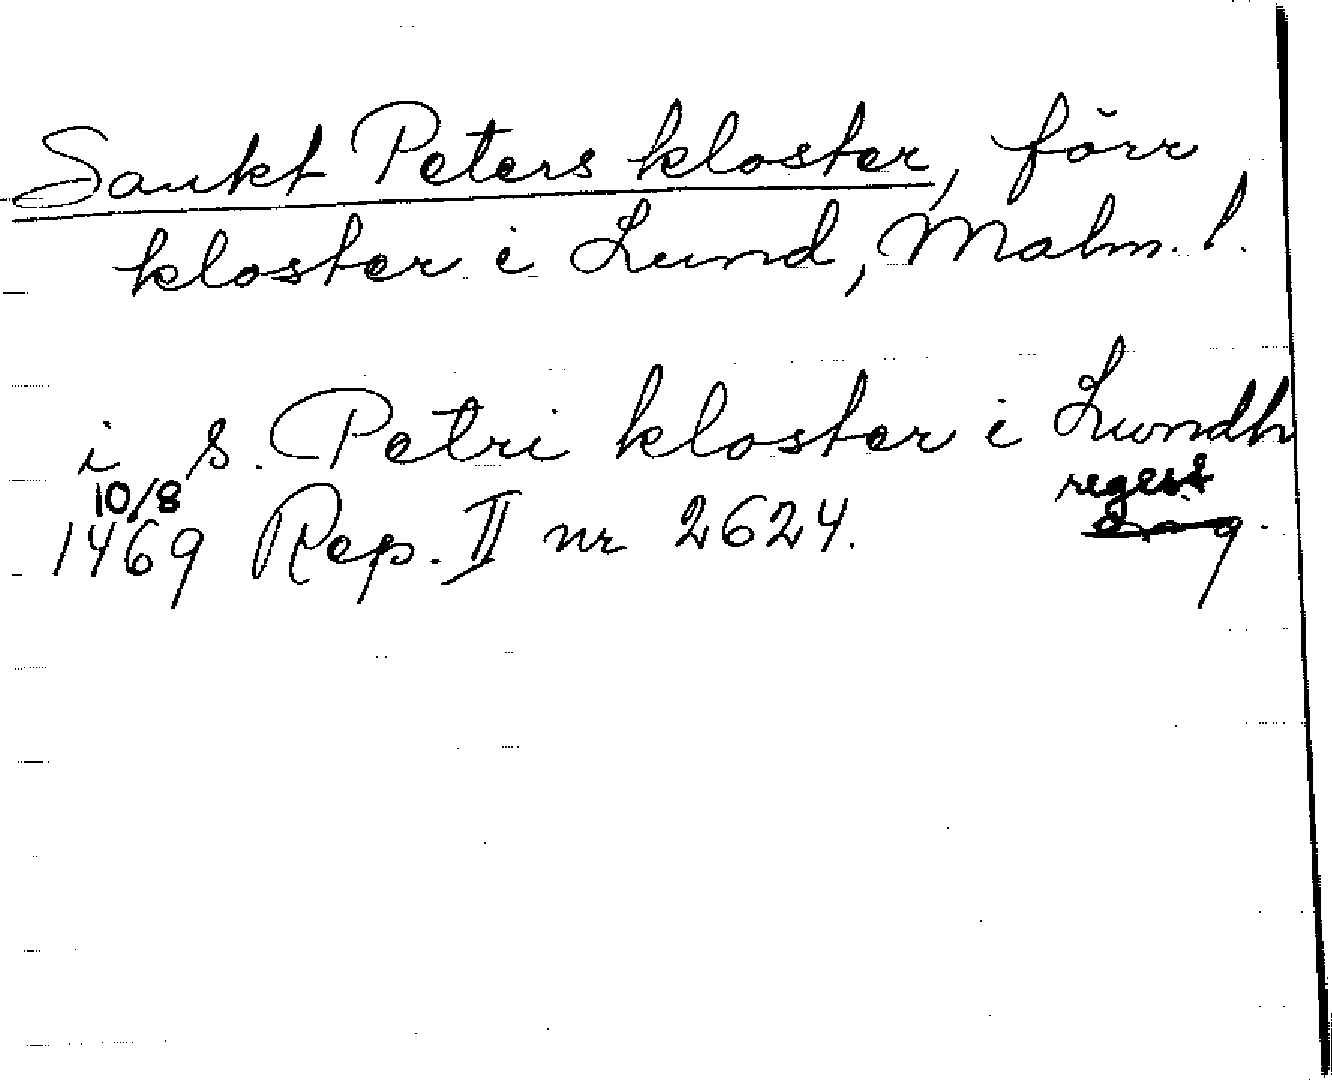 Sankt Peters kloster, förr
kloster i Lund, Malm. l.
i S. Petri kloster i Lundh
10/8 regest
1469 Rep. II nr 2624.